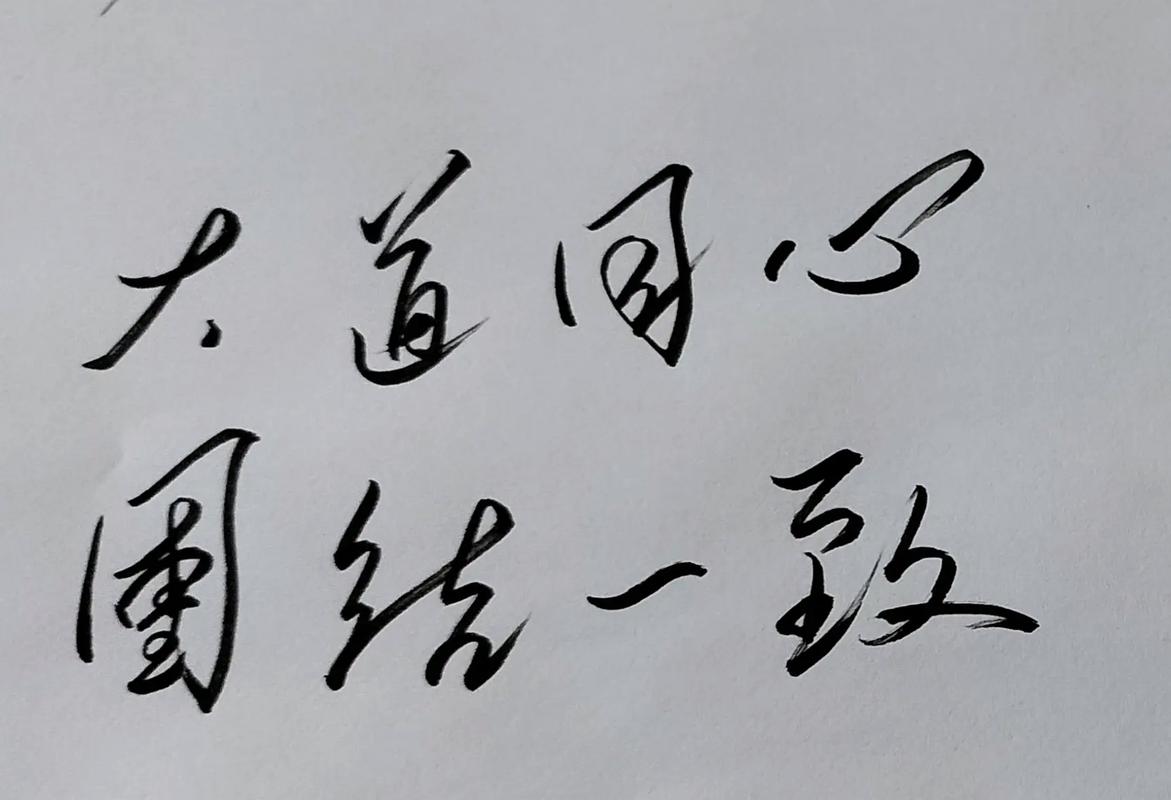 大道同心
團结一致